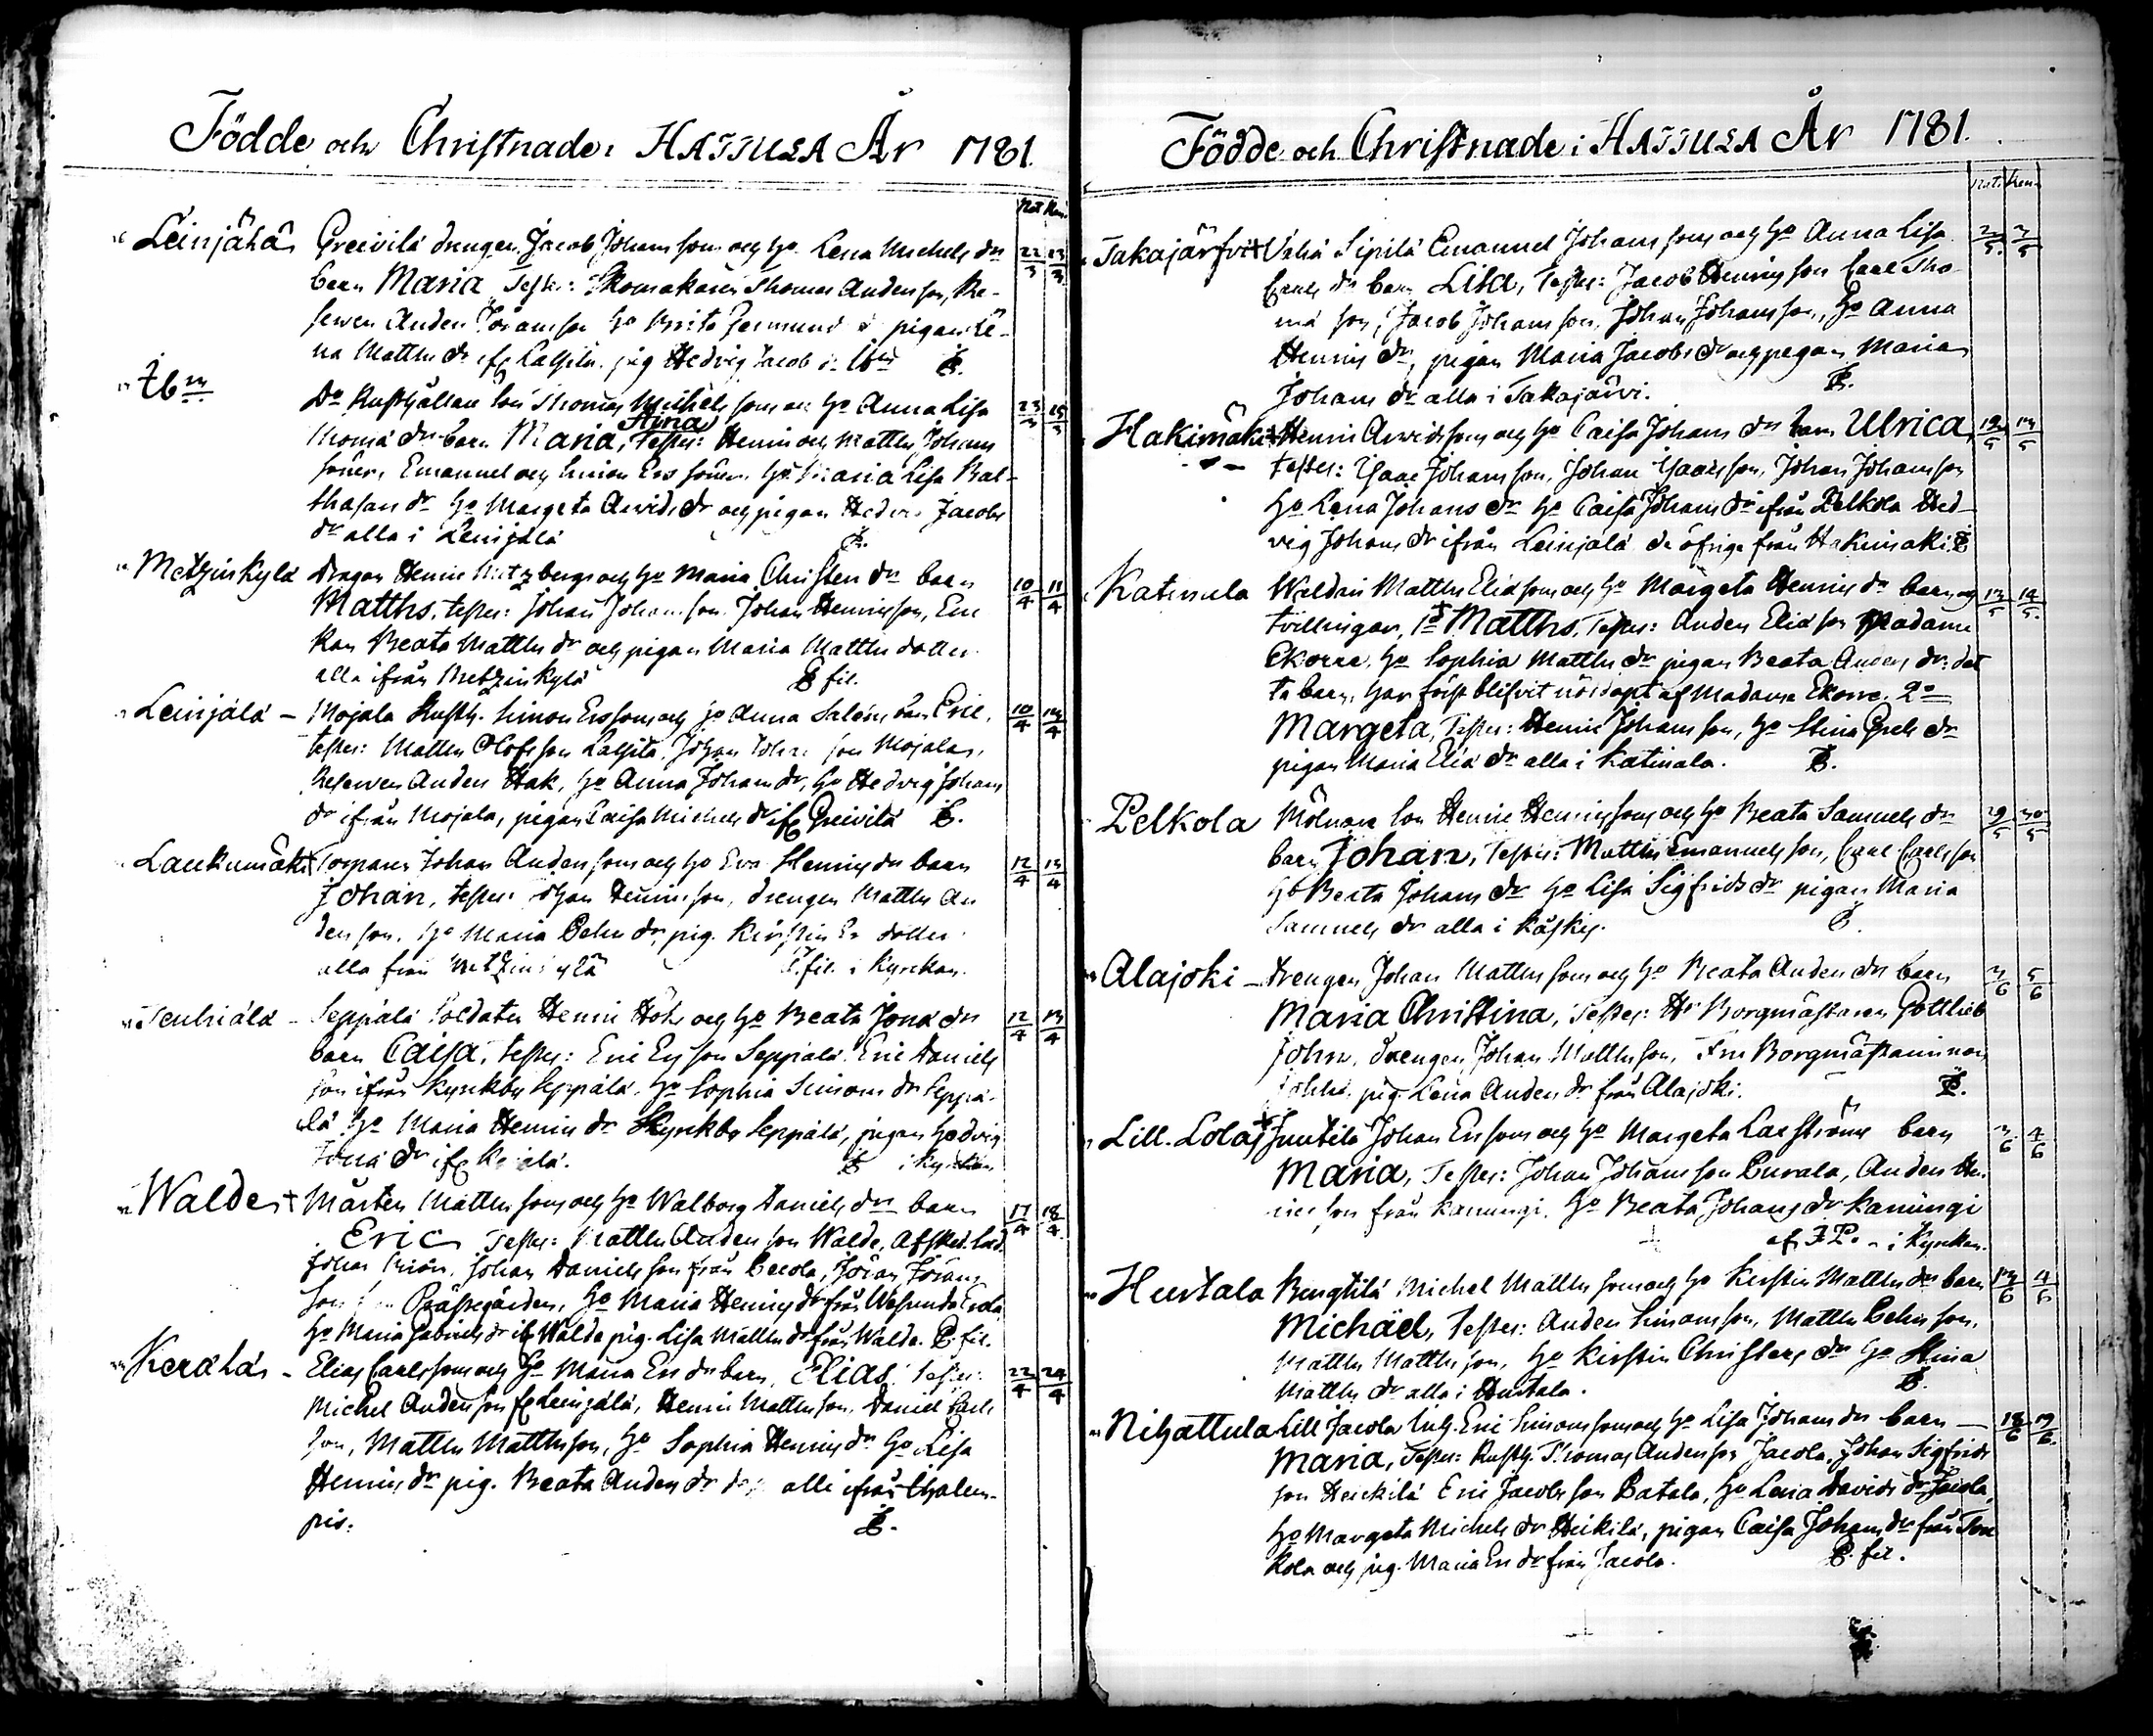 Födde och Christnade i HATTULA År 1781.
Nat Ren.
Leinjälä Greivilä drengen Jacob Johans son och ho Lena Michels dr 22/3 23/3
barn Maria Test: Skomakaren Thomas Anders son, Re-
serven Anders Jörans son ho Brita pigan Le-
na Matths dr ifr Lassila pig Hedvig Jacobs dr B.
Ibm Do Rusthållare son Thomas Michels son och ho Anna Lisa 23/3 25/3
Stina
Thomæ dr barn Maria, Testes: Henric och Matths Johans
söner, Emanuel och Simon Ers söner, ho Maria Lisa Bal-
thasars dr ho Margeta Arvids dr och pigan Hedvig Jacobs
dr alla i Leinjälä B.
Metzinkylä drägon Henric och ho Maria Christers dr barn 10/4 11/4
Matths, testes: Johan Johans son Johan Henrics son, En-
kan Beata Matths dr och pigan Maria Matths dotter
alla ifrån Metzinkylä B fil.
Leinjälä - Mojala Rusth. Simon Ers son och ho Anna Salom. barn Eric, 10/4 13/4
testes: Matths Olofs son Lassila, Johan Johans son Mojala,
Reserven Anders Hak, ho Anna Johans dr, ho Hedvig Johans
dr ifrån Mojala, pigan Caisa Michels dr ifr Greivilä B.
Laukumäki + Torparen Johan Anders son och ho Eva Henrics dr barn 12/4 13/4
Johan, testes: Johan Henrics son, drengen Matths An
ders son, ho Maria dr, pig. Kirstin Ers dotter
alla från Metzinkylä B. fil. i Kyrckan.
Tenhiälä - Seppälä Soldaten Henric Hök och ho Beata Jonæ dr 12/4 13/4
barn Caisa, testes: Eric Ers son Seppälä, Eric Daniels
son ifrån Kyrckby Seppälä, ho Sophia Simons dr Seppä-
lä ho Maria Henrics dr Kyrckby Seppälä, pigan Hedvig
Jonæ dr ifr B i Kyrckan
Walde + Mårten Matths son och ho Walborg Daniels dr barn 17/4 18/4
Eric Testes: Matths Anders son Walde, Afsked. Sold.
Johan Johan Daniels son från Jöran Jörans
son från Prästegården, ho Maria Henrics dr från
ho Maria Gabriels dr ifr Walde pig. Lisa Matths dr från Walde. B. fil.
Kerälä - Elias Carls son och ho Maria Ers dr barn, Elias, Testes: 22/4 24/4
Michel Anders son fr Leinjälä, Henric Matths son, Daniel Carls
son, Matths Matths son, ho Sophia Henrics dr ho Lisa
Henrics dr pig. Beata Anders dr alla ifrån Ihalem-
pis. B.
Födde och Christnade i HATTULA År 1781.
Nat. Ren.
Takajärfvi + Vähä Sipilä Emanuel Johans son och ho Anna Lisa 2/5 3/5
Carls dr barn Lisa, Testes: Jacob Henrics son Carl Tho-
mæ son, Jacob Johans son, Johan Johans son, ho Anna
Henrics dr, pigan Maria Jacobs dr och pigan Maria
Johans dr alla i Takajärvi. B.
Hakimäki + Henric Arvids son och ho Caisa Johans dr barn Ulrica, 12/5 13/5
testes: Isaac Johans son, Johan Isaacs son, Johan Johans son
ho Lena Johans dr ho Caisa Johans dr ifrån Pelkola Hed-
vig Johans dr ifrån Leinjälä de öfrige från Hakimäki B
Katinala Waldari Matths Eliæ son och ho Margeta Henrics dr barn 13/5 14/5
tvillingar, 1o Matths, Testes: Anders Eliæ son Madame
Ekorre, ho Sophia Matths dr pigan Beata Anders dr. det
ta barn har först blifvit nöddöpt af Madame Ekorre. 2o
Margeta, Testes: Henric Johans son, ho Stina Grels dr
pigan Maria Eliæ dr alla i Katinala. B.
Pelkola Mölnare son Henric Henrics son och ho Beata Samuels dr 29/5 30/5
barn Johan, Testes: Matths Emanuels son, Carl Carls son
ho Beata Johans dr ho Lisa Sigfrids dr pigan Maria
Samuels dr alla i B.
Alajoki - drengen Johan Matths son och ho Beata Anders dr barn 3/6 5/6
Maria Christina, Testes: Hr Borgmästaren Gottlieb
John, drengen Johan Matths son, Fru Borgmästarinnan
John, pig. Lena Anders dr från Alajoki. B.
Lill. Lolais + Juutila Johan Ers son och ho Margeta Larsströms barn 3/6 4/6
Maria, Testes: Johan Johans son Anders Hen-
rics son från ho Beata Johans dr
af J.P. i Kyrckan.
Hurtala Bengtilä Michel Matths son och ho Kirstin Matths dr barn
Michäel, Testes: Anders Simons son, Matths
Matths Matths son, ho Kirstin Christers dr ho Stina
Matths dr alla i Hurtala. B.
Nihattula Lill Jacola Eric Simons son och ho Lisa Johans dr barn 18/6 19/6
Maria, Testes: Rusth. Thomas Anders son Jacola, Johan Sigfrids
son Heickilä Eric Jacobs son Patala, ho Lena Davids dr Jacola,
ho Margeta Michels dr Heikilä, pigan Caisa Johans dr från
kola och pig. Maria Ers dr från Jacola. B. fil.